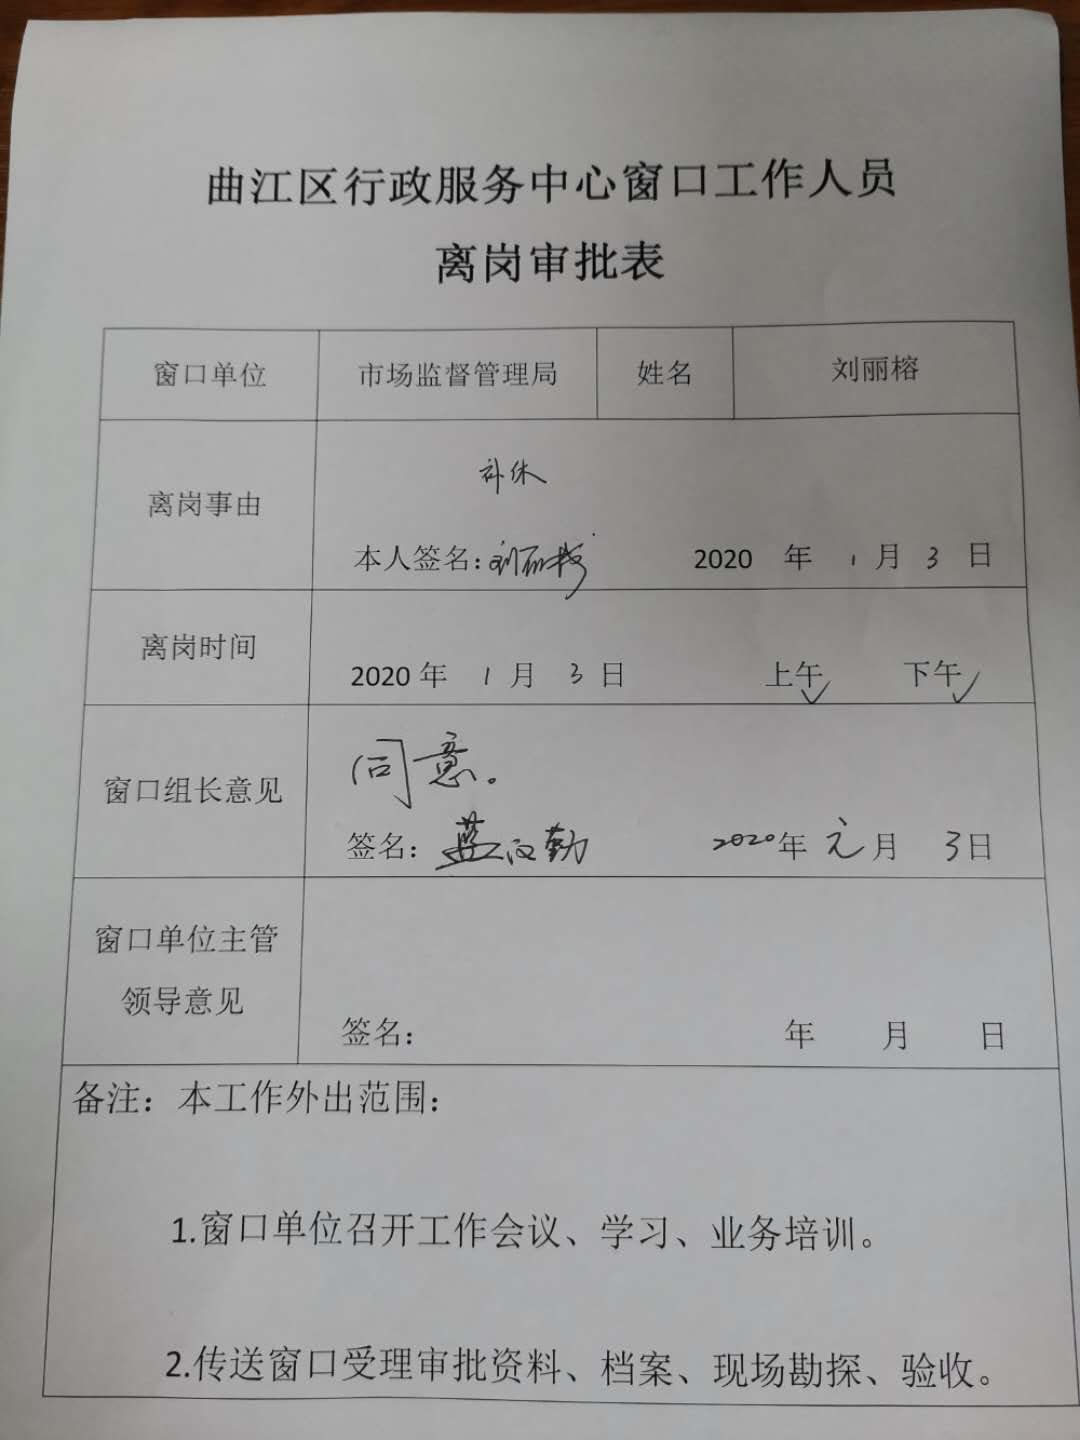 曲江区行政服务中心窗口工作人员
离岗审批表
窗口单位 市场监督管理局 姓名 刘丽榕
离岗事由
补休
本人签名:刘丽榕 2020 年 1 月 3 日
离岗时间
2020年 1 月 3 日 上午✓ 下午✓
窗口组长意见
同意。
签名: 蓝汉勤 2020年 元月 3日
窗口单位主管
领导意见
签名: 年 月 日
备注：本工作外出范围：
1.窗口单位召开工作会议、学习、业务培训。
2.传送窗口受理审批资料、档案、现场勘探、验收。